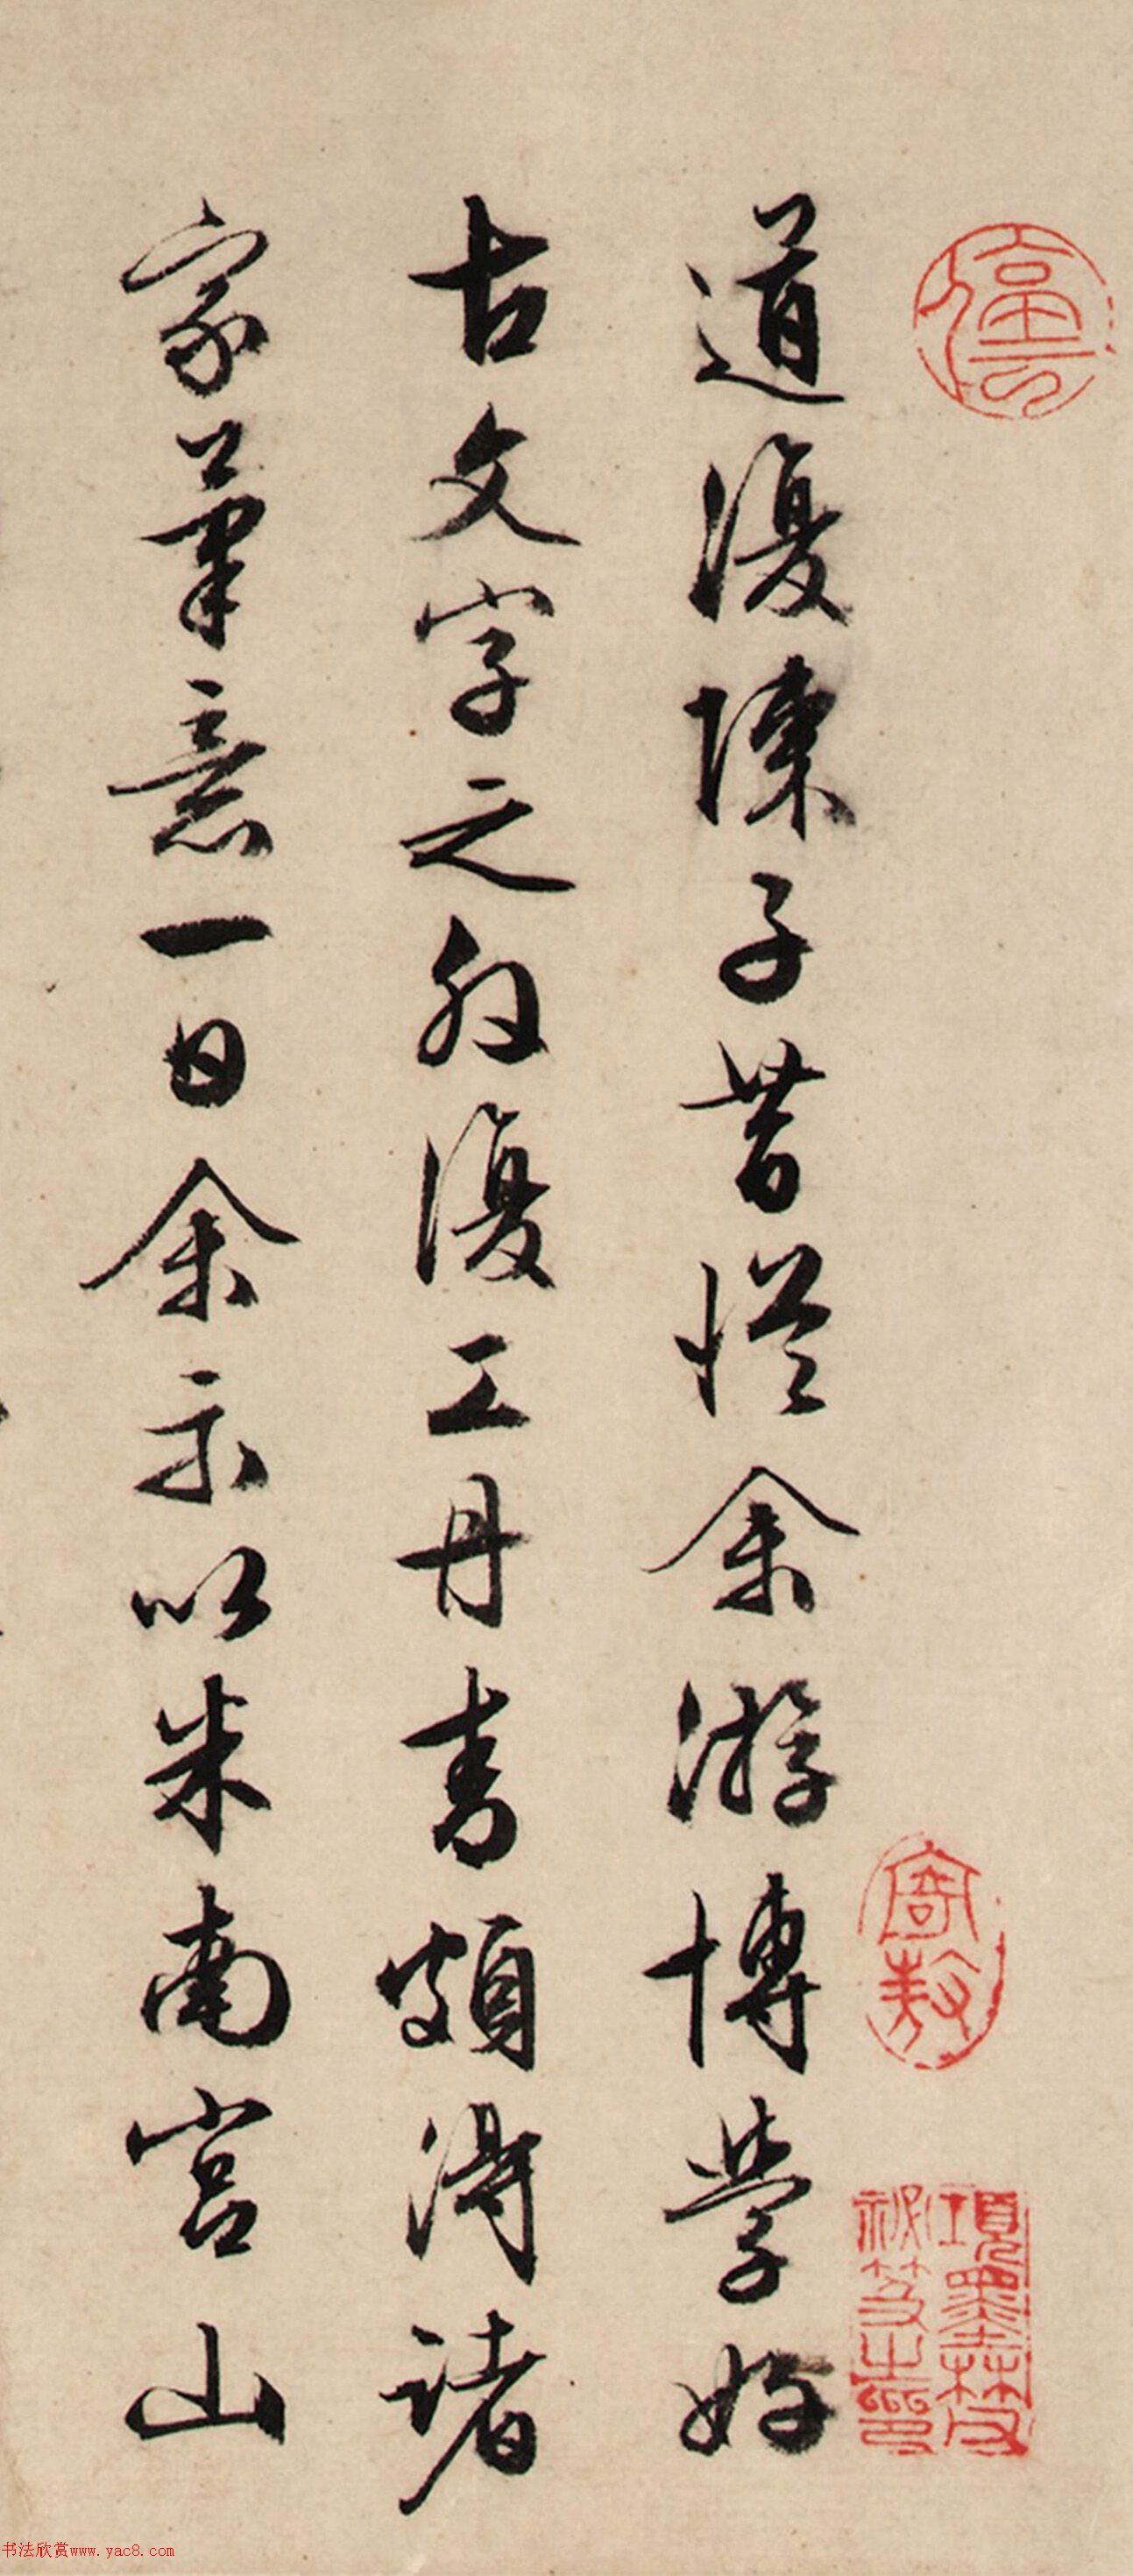 道復陳子昔從余游博學好
古文字之外復工丹青頗得諸
家筆意一日余示以米南宮山
寄敖
項墨林父
祕笈之印
书法欣赏www.yac8.com